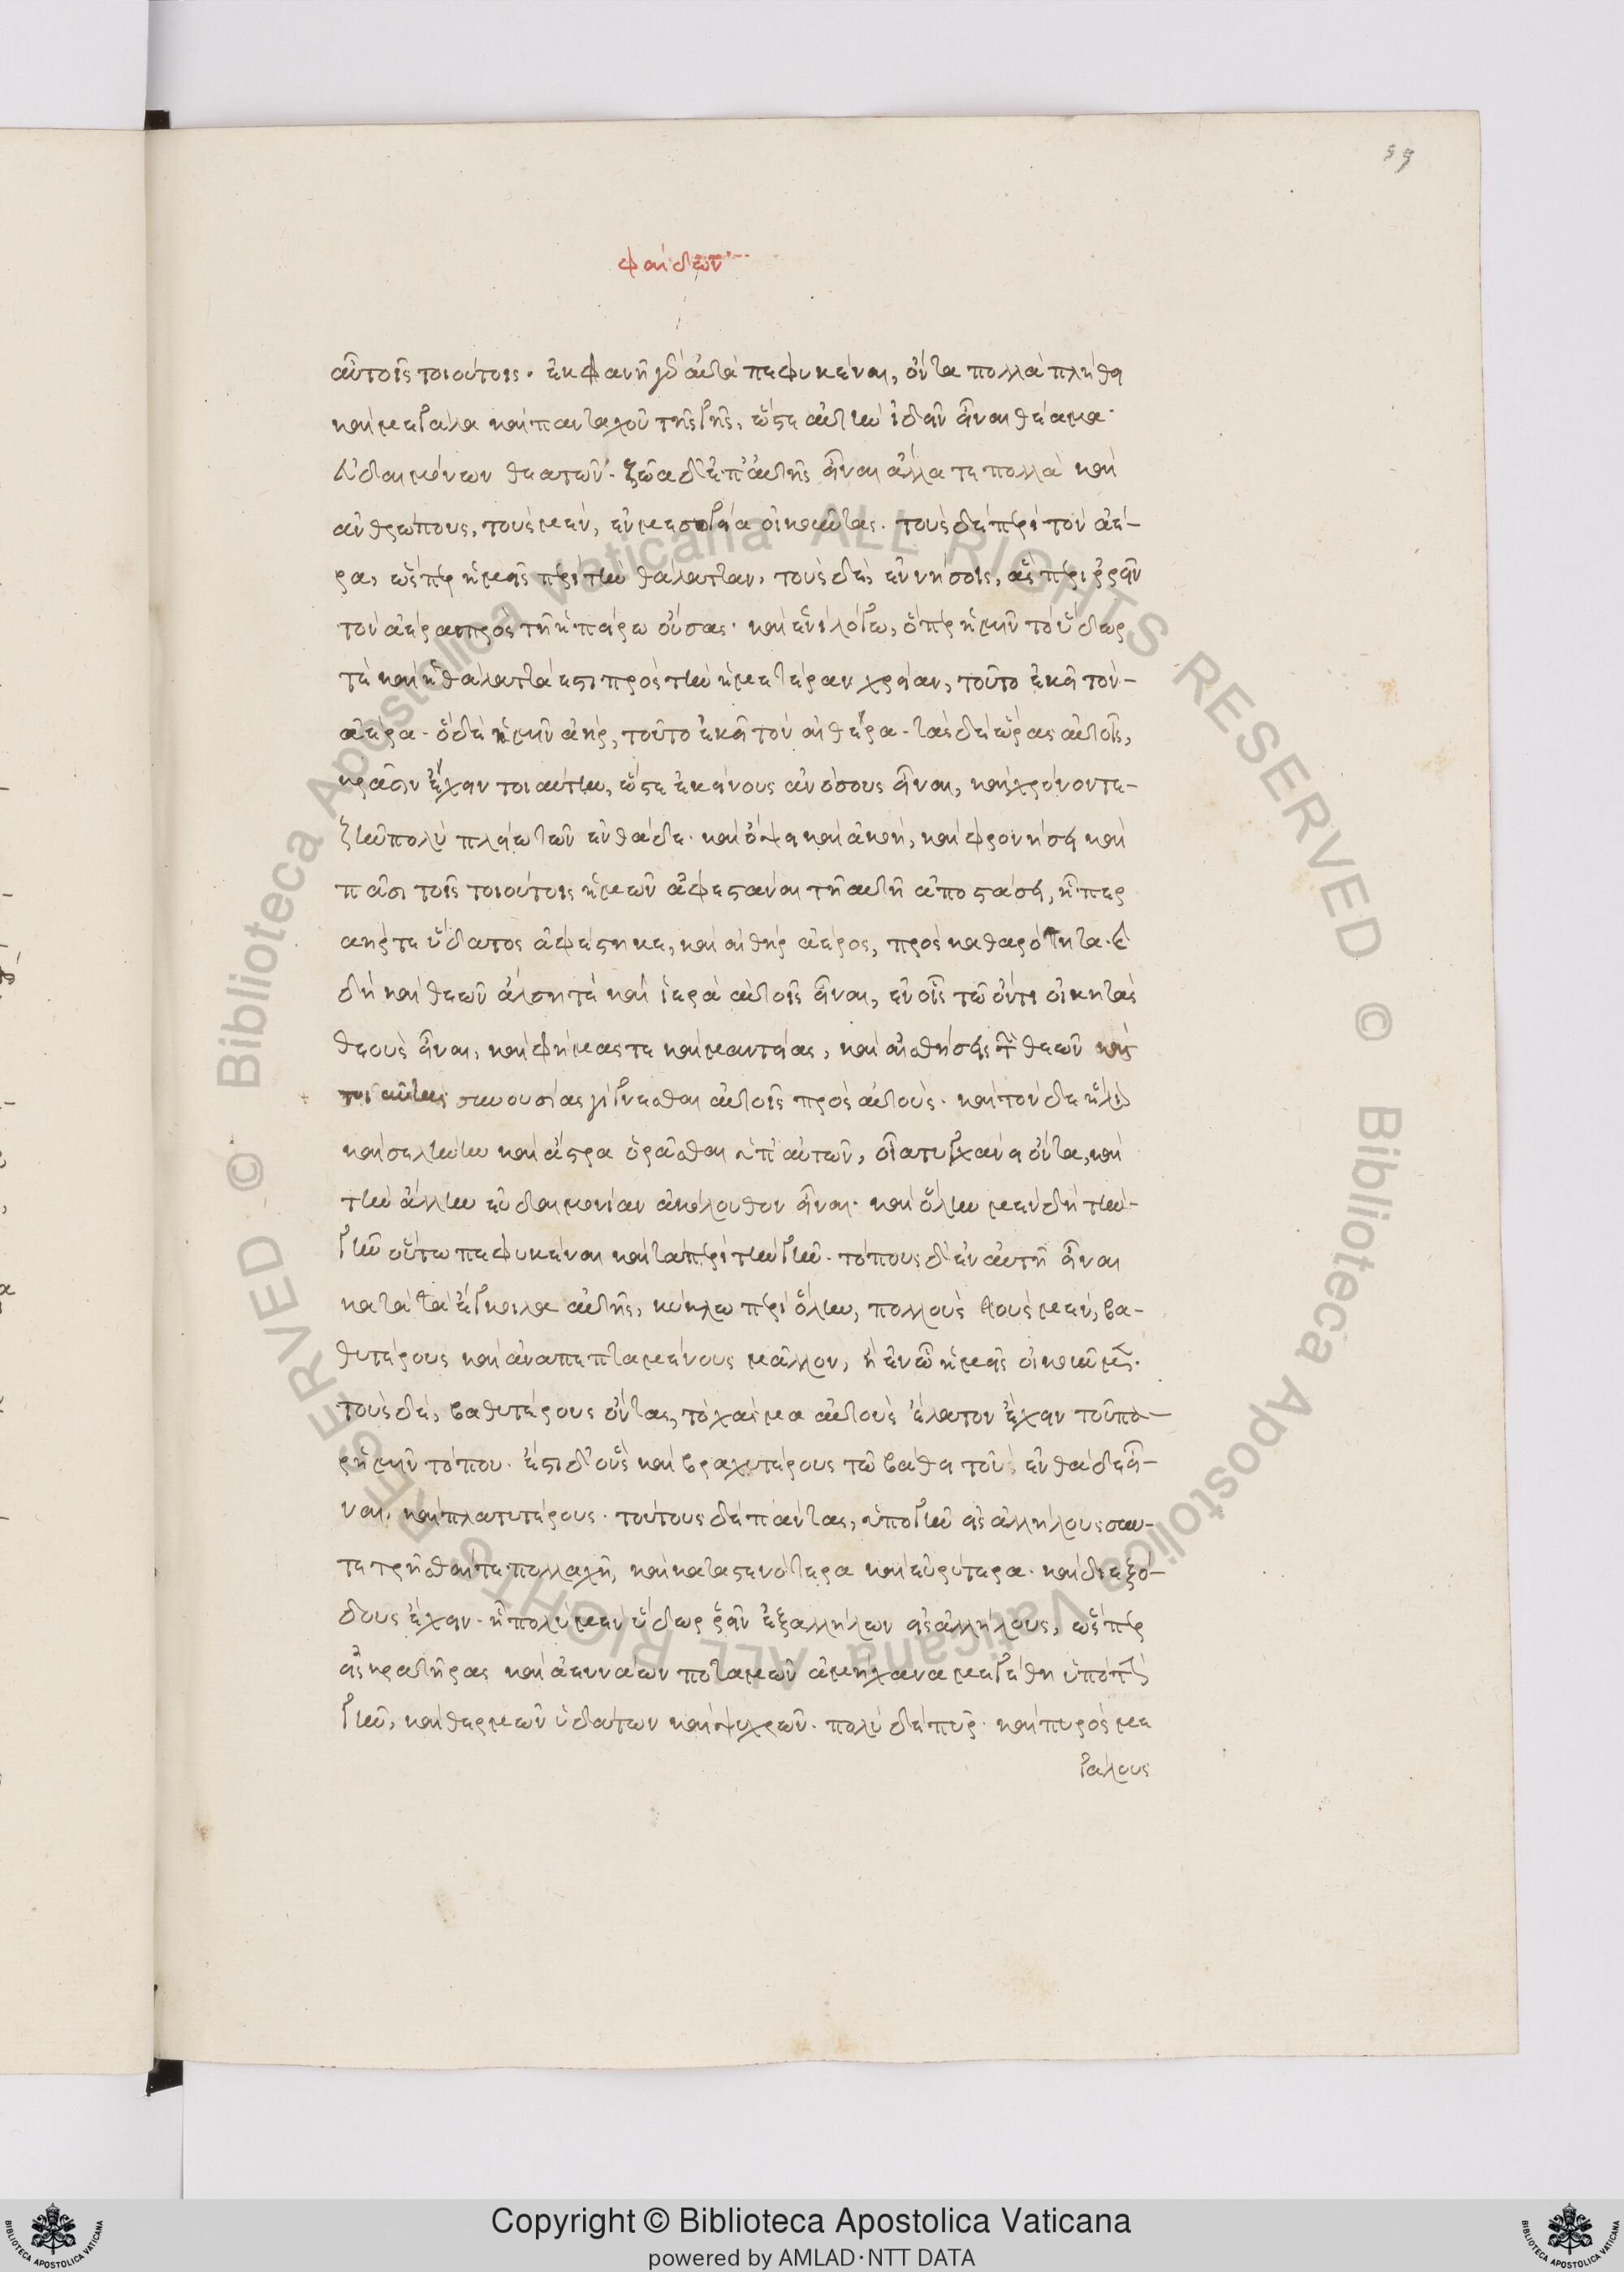 59
φαίδων
αὖ τοῖς τοιούτοις. ἐκφανῆ γὰρ αὐτὰ πεφυκέναι, ὄντα πολλὰ πλήθει
καὶ μεγάλα καὶ πανταχοῦ τῆς γῆς, ὥστε αὐτὴν ἰδεῖν εἶναι θέαμα
εὐδαιμόνων θεατῶν. ζῶα δὲ ἐπ' αὐτῆς εἶναι ἄλλα τε πολλὰ καὶ
ἀνθρώπους, τοὺς μὲν, ἐν μεσογεία οἰκοῦντας. τοὺς δὲ περὶ τὸν ἀέ-
ρα, ὥσπερ ἡμεῖς περὶ τὴν θάλατταν, τοὺς δὲ, ἐν νήσοις, ἃς περιρρεῖν
τὸν ἀέρα πρὸς τῆ ἠπείρω οὔσας. καὶ ἑνὶ λόγω, ὅπερ ἡμῖν τὸ ὕδωρ
τὲ καὶ ἡ θάλαττά ἐστι πρὸς τὴν ἡμετέραν χρείαν, τοῦτο ἐκεῖ τὸν
ἀέρα. ὃ δὲ ἡμῖν ἀὴρ, τοῦτο ἐκεῖ τὸν αἰθέρα. τὰς δὲ ὥρας αὐτοῖς,
κρᾶσιν ἔχειν τοιαύτην, ὥστε ἐκείνους ἀνόσους εἶναι, καὶ χρόνον τε
ζῆν πολὺ πλείω τῶν ἐνθάδε. καὶ ὄψει καὶ ἀκοῆ, καὶ φρονήσει καὶ
πᾶσι τοῖς τοιούτοις ἡμῶν ἀφεστάναι τῆ αὐτῆ ἀποστάσει, ἧπερ
ἀήρ τε ὕδατος ἀφέστηκε, καὶ αἰθὴρ ἀέρος, πρὸς καθαρότητα. καὶ
δὴ καὶ θεῶν ἄλση τὲ καὶ ἱερὰ αὐτοῖς εἶναι, ἐν οἷς τῶ ὄντι οἰκητὰς
θεοὺς εἶναι, καὶ φήμας τε καὶ μαντείας, καὶ αἰσθήσεις τῶν θεῶν καὶ
τοιαύτας συνουσίας γίγνεσθαι αὐτοῖς πρὸς αὐτούς. καὶ τόν δε ἥλιον
καὶ σελήνην καὶ ἄστρα ὁρᾶσθαι ὑπ' αὐτῶν, οἷα τυγχάνει ὄντα, καὶ
τὴν ἄλλην εὐδαιμονίαν ἀκόλουθον εἶναι. καὶ ὅλην μὲν δὴ τὴν
γῆν οὕτω πεφυκέναι καὶ τὰ περὶ τὴν γῆν. τόπους δ' ἐν αὐτῆ εἶναι
κατὰ τὰ ἔγκοιλα αὐτῆς, κύκλω περὶ ὅλην, πολλοὺς τοὺς μὲν, βα-
θυτέρους καὶ ἀναπεπταμένους μᾶλλον, ἢ ἐν ᾧ ἡμεῖς οἰκοῦμεν.
τοὺς δὲ, βαθυτέρους ὄντας, τὸ χάσμα αὐτοὺς ἔλαττον ἔχειν τοῦ πα-
ρ' ἡμῖν τόπου. ἔστι δ' οὓς καὶ βραχυτέρους τῶ βάθει τοῦ ἐνθάδε εἶ-
ναι, καὶ πλατυτέρους. τούτους δὲ πάντας, ὑπὸ γῆν εἰς ἀλλήλους συν-
τετρῆσθαί τε πολλαχῆ, καὶ κατὰ στενότερα καὶ εὐρύτερα. καὶ διεξό-
δους ἔχειν. ἧ πολὺ μὲν ὕδωρ ῥεῖν ἐξ ἀλλήλων εἰς ἀλλήλους, ὥσπερ
εἰς κρατῆρας καὶ ἀεννάων ποταμῶν ἀμήχανα μεγέθη ὑπὸ τὴν
γῆν, καὶ θερμῶν ὑδάτων καὶ ψυχρῶν. πολὺ δὲ πῦρ. καὶ πυρὸς με
γάλους
Copyright © Biblioteca Apostolica Vaticana
powered by AMLAD·NTT DATA